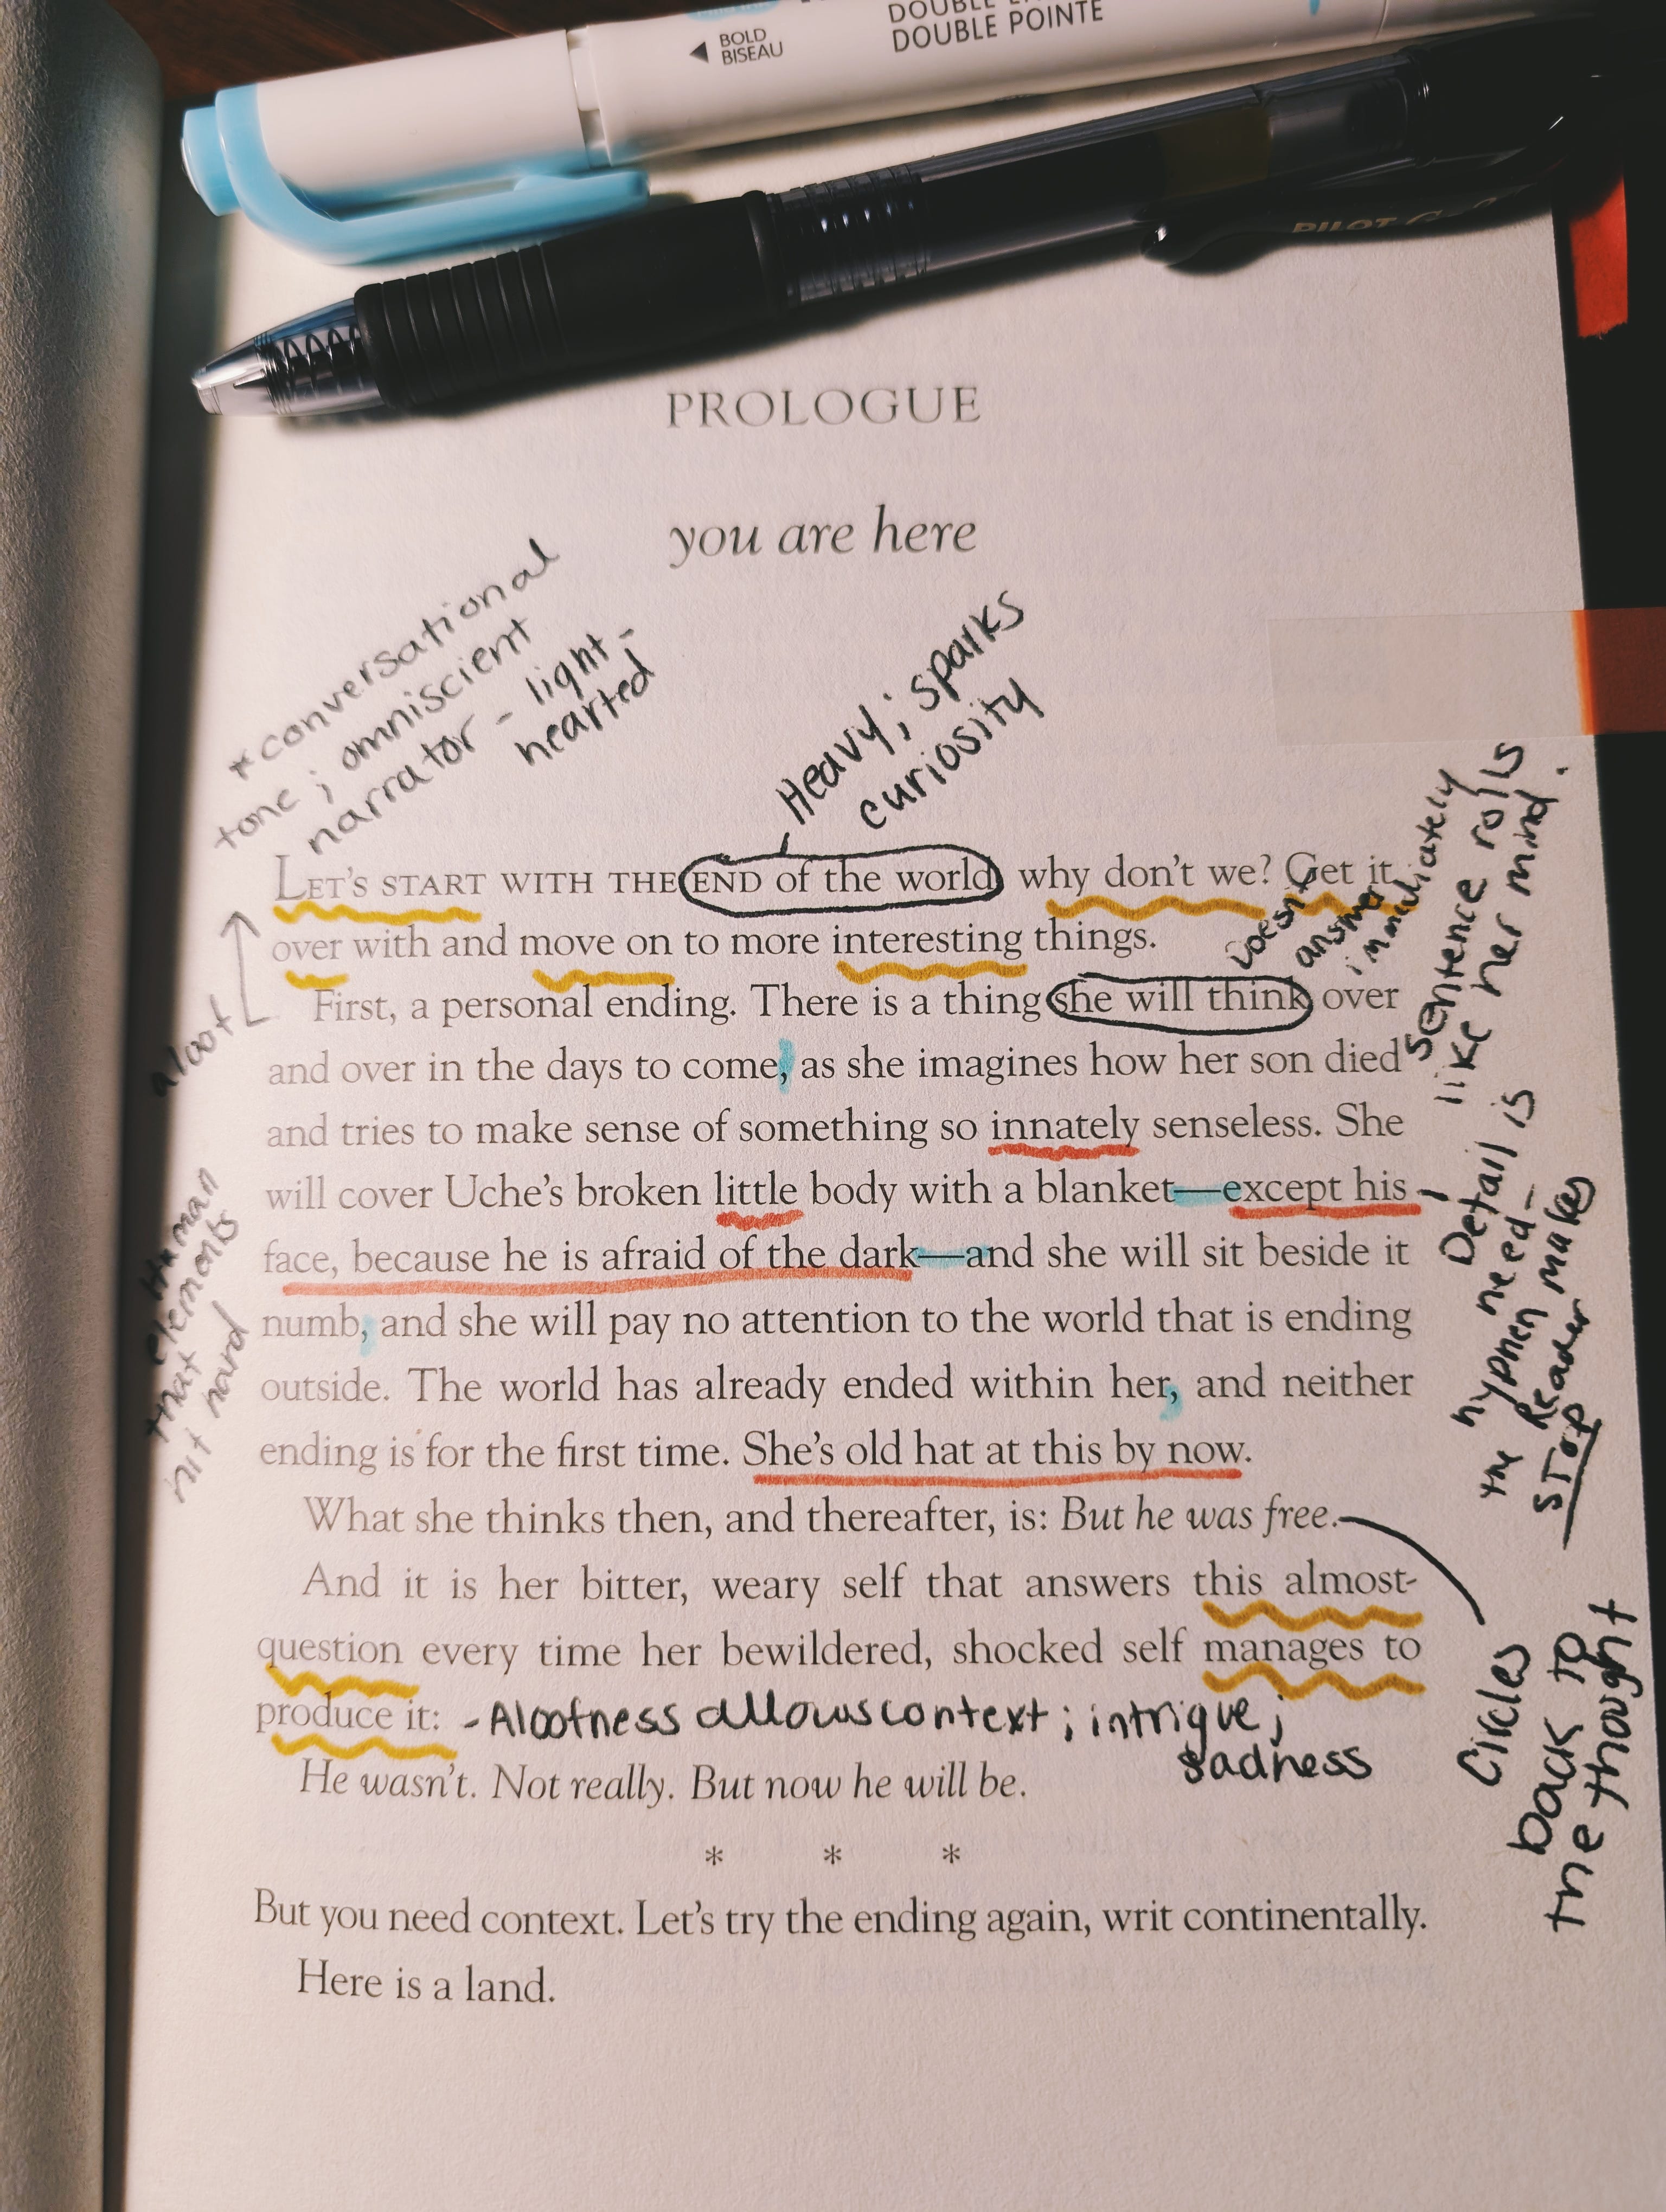 BOLD
BISEAU
DOUBLE
DOUBLE POINTE
PILOT G-2
PROLOGUE
you are here
*conversational
tone; omniscient
narrator - light-
hearted
Heavy; sparks
curiosity
LET'S START WITH THE END of the world, why don't we? Get it
over with and move on to more interesting things.
First, a personal ending. There is a thing she will think over
and over in the days to come, as she imagines how her son died
and tries to make sense of something so innately senseless. She
will cover Uche's broken little body with a blanket—except his
face, because he is afraid of the dark—and she will sit beside it
numb, and she will pay no attention to the world that is ending
outside. The world has already ended within her, and neither
ending is for the first time. She's old hat at this by now.
What she thinks then, and thereafter, is: But he was free.
And it is her bitter, weary self that answers this almost-
question every time her bewildered, shocked self manages to
produce it:
- Alootness allows context; intrigue;
sadness
He wasn't. Not really. But now he will be.
* * *
But you need context. Let's try the ending again, writ continentally.
Here is a land.
aloof
Human
elements
that
hit hard
Doesn't
answer
immediately
Sentence rolls
like her mind.
Detail is
need-
the hyphen makes
Reader
STOP
Circles
back to
the thought